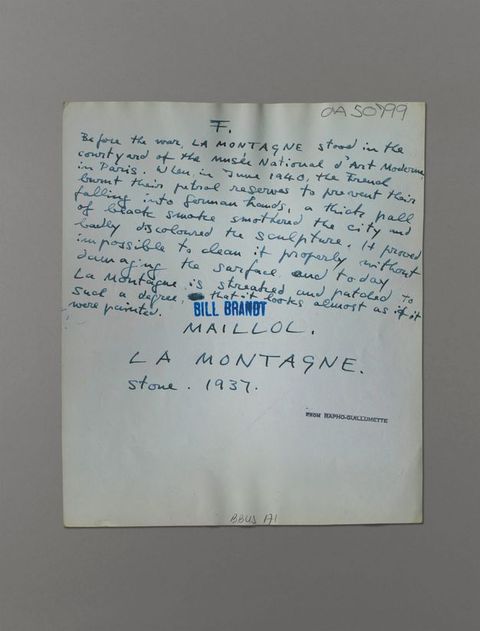 OA 50799
F.
Before the war, LA MONTAGNE stood in the
courtyard of the musée National d'Art Moderne
in Paris. When, in June 1940, the French
burnt their petrol reserves to prevent their
falling into German hands, a thick pall
of black smoke smothered the city and
badly discoloured the sculpture. It proved
impossible to clean it properly without
damaging the surface and today
La Montagne is streaked and patched to
such a degree that it looks almost as if it
were painted.
BILL BRANDT
MAILLOL.
LA MONTAGNE.
stone. 1937.
FROM RAPHO-GUILLUMETTE
BBUS 171